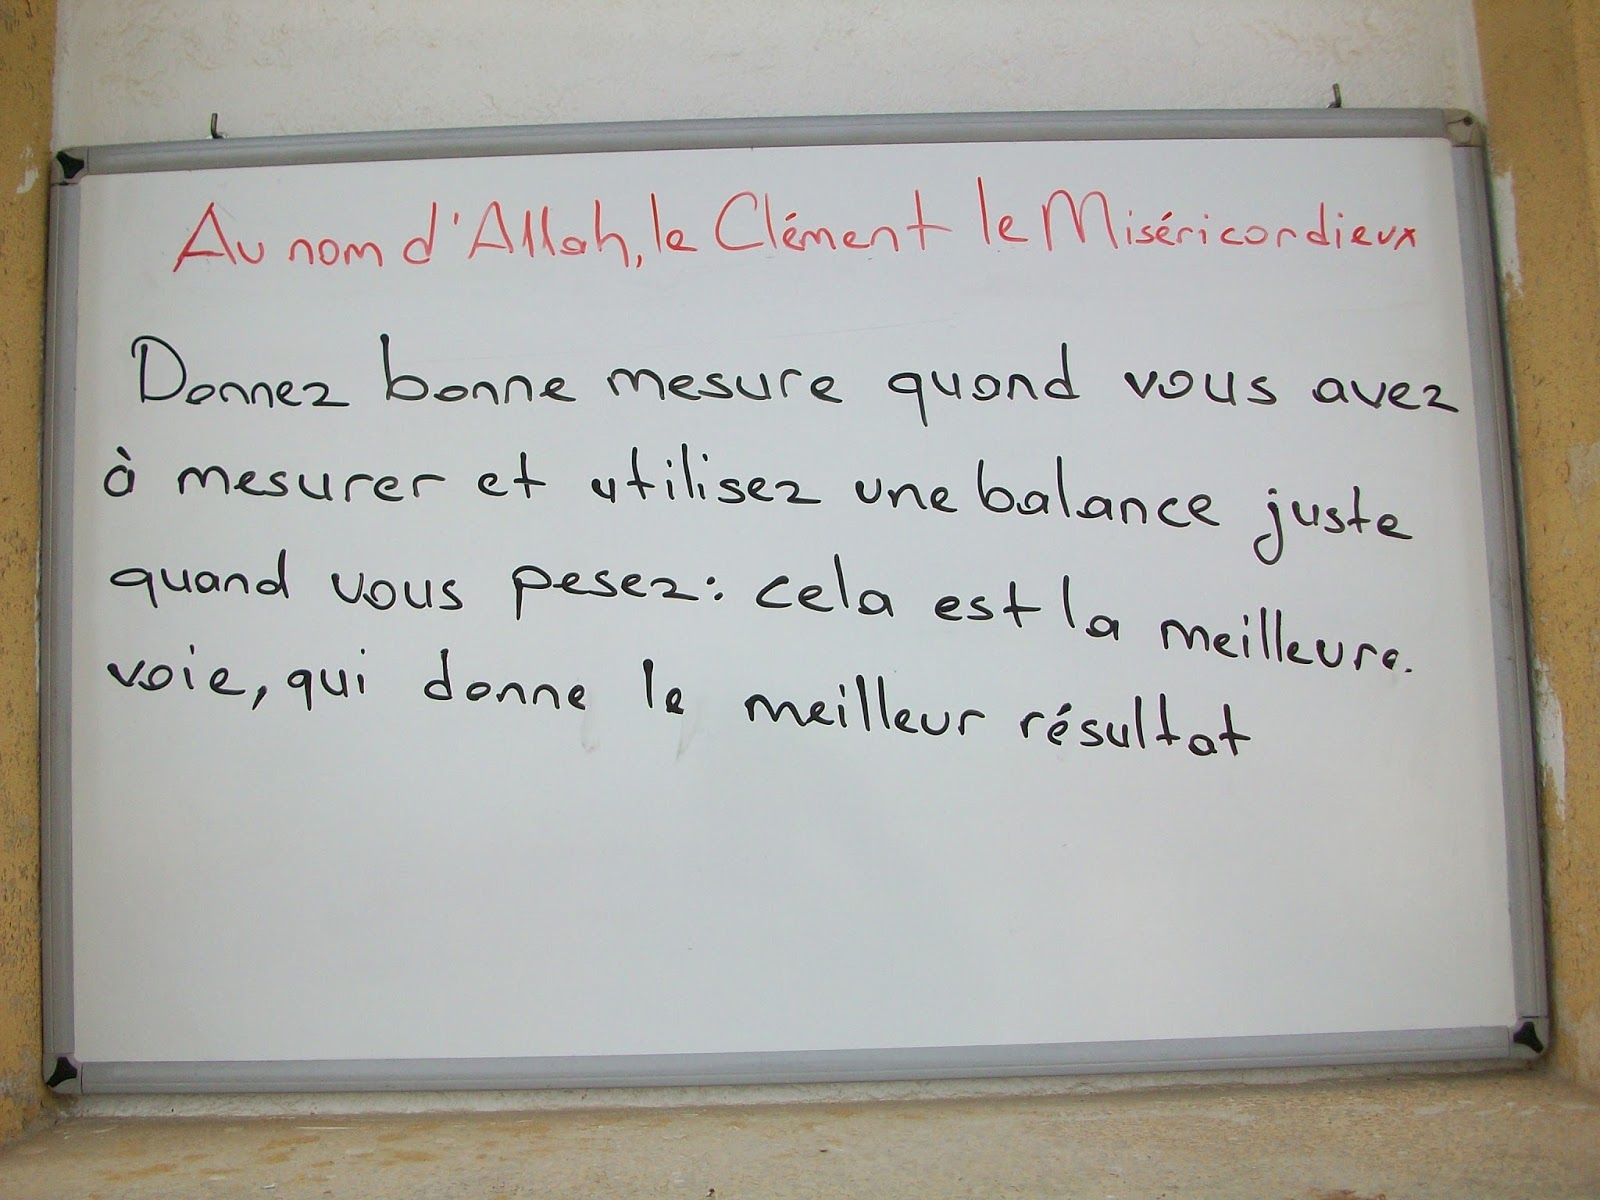 Au nom d'Allah, le Clément le Miséricordieux
Donnez bonne mesure quand vous avez
à mesurer et utilisez une balance juste
quand vous pesez: cela est la meilleure.
voie, qui donne le meilleur résultat